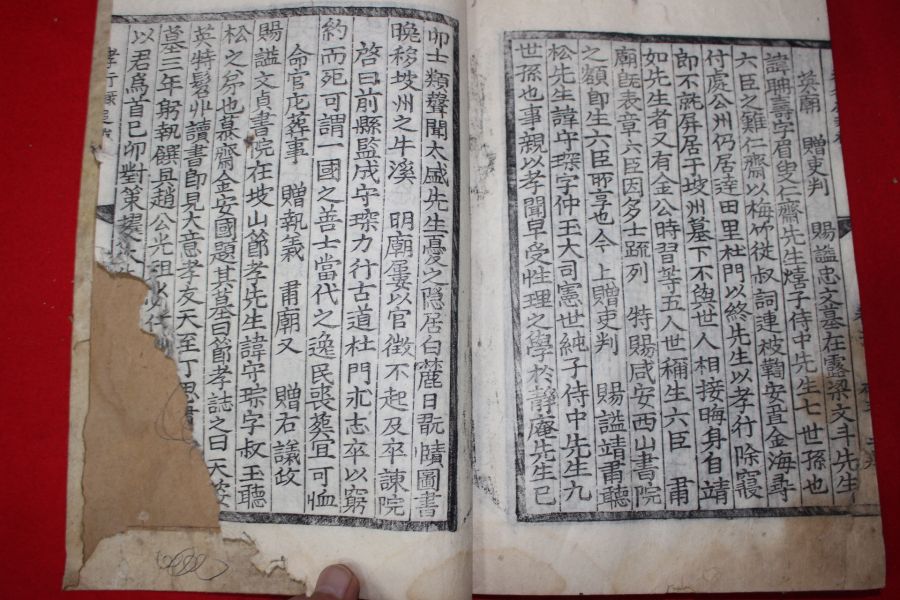 英廟 贈吏判 賜謚忠文墓在露梁文斗先生
諱聃壽字眉叟仁齋先生熺子侍中先生七世孫也
六臣之難仁齋以梅竹從叔詞連被鞫安置金海尋
付處公州仍居涬田里杜門以終先生以孝行除寢
郎不就屏居于坡州墓下不與世人相接晦身自靖
如先生者又有金公時習等五人世稱生六臣 肅
廟旣表章六臣因多士䟽列 特賜咸安西山書院
之額卽生六臣所享也今 上贈吏判 賜謚靖肅聽
松先生諱守琛字仲玉大司憲世純子侍中先生九
世孫也事親以孝聞早受性理之學於靜庵先生己
卯士類聲聞太盛先生憂之隱居白麓日翫賾圖書
晩移坡州之牛溪 明廟屢以官徵不起及卒諫院
啓曰前縣監成守琛力行古道杜門求志卒以窮
約而死可謂一國之善士當代之逸民喪葬宜可恤
命官庀葬事 贈執義 肅廟又 贈右議政
賜謚文貞書院在坡山節孝先生諱守琮字叔玉聽
松之弟也慕齋金安國題其墓曰節孝誌之曰天姿
英特髫丱讀書卽見大意孝友天至丁思肅
墓三年躬執饌具趙公光祖
以君爲首己卯對策